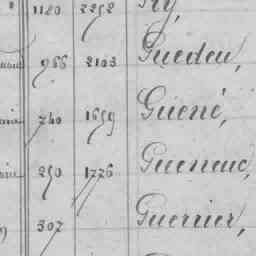 1180 2252
966 2103 Guedeu,
740 1659 Guéné,
250 1776 Gueneuc,
307 Guerrier,